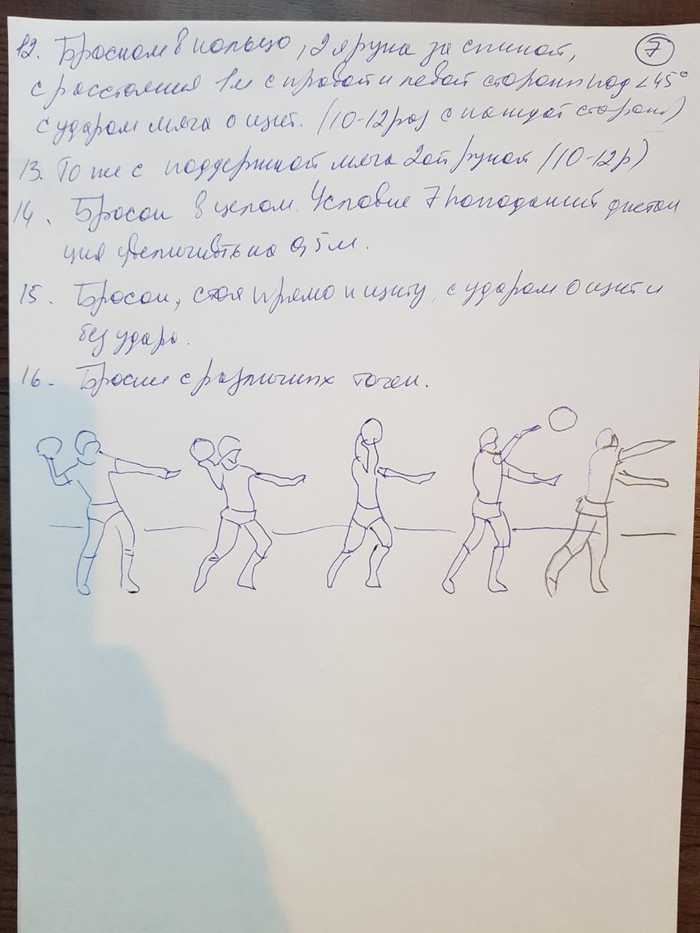 7
12. Броском в кольцо, 2я рука за спиной,
с расстояния 1м с правой и левой стороны под <45°
с ударом мяча о щит. (10-12 раз с каждой стороны)
13. То же с поддержкой мяча 2ой рукой (10-12р)
14. Бросок в целом. Условие 7 попаданий дистан
ция увеличивать на 0,5м.
15. Бросок, стоя прямо к щиту, с ударом о щит и
без удара.
16. Броски с различных точек.